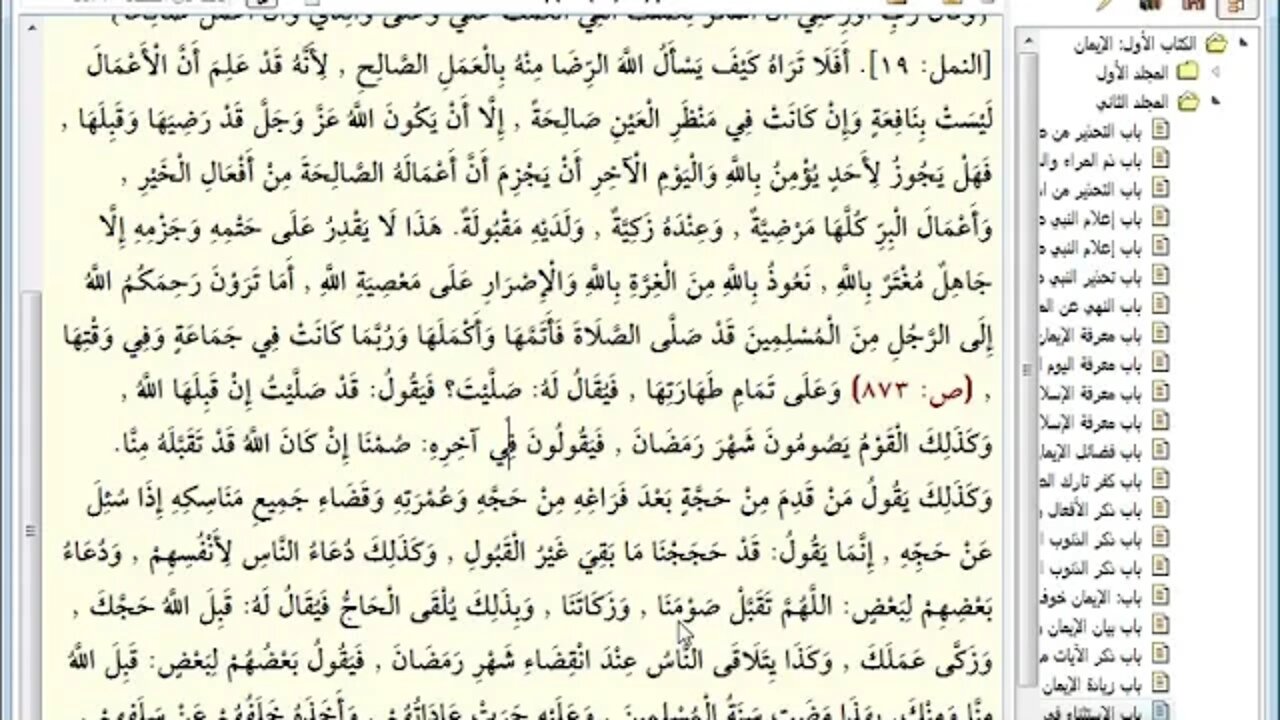 [النمل: ١٩]. أَفَلَا تَرَاهُ كَيْفَ يَسْأَلُ اللَّهَ الرِّضَا مِنْهُ بِالْعَمَلِ الصَّالِحِ , لِأَنَّهُ قَدْ عَلِمَ أَنَّ الْأَعْمَالَ
لَيْسَتْ بِنَافِعَةٍ وَإِنْ كَانَتْ فِي مَنْظَرِ الْعَيْنِ صَالِحَةً , إِلَّا أَنْ يَكُونَ اللَّهُ عَزَّ وَجَلَّ قَدْ رَضِيَهَا وَقَبِلَهَا ,
فَهَلْ يَجُوزُ لِأَحَدٍ يُؤْمِنُ بِاللَّهِ وَالْيَوْمِ الْآخِرِ أَنْ يَجْزِمَ أَنَّ أَعْمَالَهُ الصَّالِحَةَ مِنْ أَفْعَالِ الْخَيْرِ ,
وَأَعْمَالَ الْبِرِّ كُلَّهَا مَرْضِيَّةٌ , وَعِنْدَهُ زَكِيَّةٌ , وَلَدَيْهِ مَقْبُولَةٌ. هَذَا لَا يَقْدِرُ عَلَى حَتْمِهِ وَجَزْمِهِ إِلَّا
جَاهِلٌ مُغْتَرٌّ بِاللَّهِ , نَعُوذُ بِاللَّهِ مِنَ الْغِرَّةِ بِاللَّهِ وَالْإِصْرَارِ عَلَى مَعْصِيَةِ اللَّهِ , أَمَا تَرَوْنَ رَحِمَكُمُ اللَّهُ
إِلَى الرَّجُلِ مِنَ الْمُسْلِمِينَ قَدْ صَلَّى الصَّلَاةَ فَأَتَمَّهَا وَأَكْمَلَهَا وَرُبَّمَا كَانَتْ فِي جَمَاعَةٍ وَفِي وَقْتِهَا
, (ص: ٨٧٣) وَعَلَى تَمَامِ طَهَارَتِهَا , فَيُقَالُ لَهُ: صَلَّيْتَ؟ فَيَقُولُ: قَدْ صَلَّيْتُ إِنْ قَبِلَهَا اللَّهُ ,
وَكَذَلِكَ الْقَوْمُ يَصُومُونَ شَهْرَ رَمَضَانَ , فَيَقُولُونَ فِي آخِرِهِ: صُمْنَا إِنْ كَانَ اللَّهُ قَدْ تَقَبَّلَهُ مِنَّا.
وَكَذَلِكَ يَقُولُ مَنْ قَدِمَ مِنْ حَجَّةٍ بَعْدَ فَرَاغِهِ مِنْ حَجِّهِ وَعُمْرَتِهِ وَقَضَاءِ جَمِيعِ مَنَاسِكِهِ إِذَا سُئِلَ
عَنْ حَجِّهِ , إِنَّمَا يَقُولُ: قَدْ حَجَجْنَا مَا بَقِيَ غَيْرُ الْقَبُولِ , وَكَذَلِكَ دُعَاءُ النَّاسِ لِأَنْفُسِهِمْ , وَدُعَاءُ
بَعْضِهِمْ لِبَعْضٍ: اللَّهُمَّ تَقَبَّلْ صَوْمَنَا , وَزَكَاتَنَا , وَبِذَلِكَ يُلْقَى الْحَاجُّ فَيُقَالُ لَهُ: قَبِلَ اللَّهُ حَجَّكَ ,
وَزَكَّى عَمَلَكَ , وَكَذَا يَتَلَاقَى النَّاسُ عِنْدَ انْقِضَاءِ شَهْرِ رَمَضَانَ , فَيَقُولُ بَعْضُهُمْ لِبَعْضٍ: قَبِلَ اللَّهُ
مِنَّا وَمِنْكَ. بِهَذَا مَضَتْ سُنَّةُ الْمُسْلِمِينَ , وَعَلَيْهِ جَرَتْ عَادَاتُهُمْ , وَأَخَذَهُ خَلَفُهُمْ عَنْ سَلَفِهِمْ ,
الكتاب الأول: الإيمان
المجلد الأول
المجلد الثاني
باب التحذير من
باب ذم المراء
باب التحذير من
باب إعلام النبي
باب إعلام النبي
باب تحذير النبي
باب النهي عن
باب معرفة الإيمان
باب معرفة اليوم
باب معرفة
باب معرفة
باب فضائل
باب كفر تارك
باب ذكر الأفعال
باب ذكر الذنوب
باب ذكر الذنوب
باب: الإيمان خوف
باب بيان الإيمان
باب ذكر الآيات
باب زيادة الإيمان
باب الاستثناء في